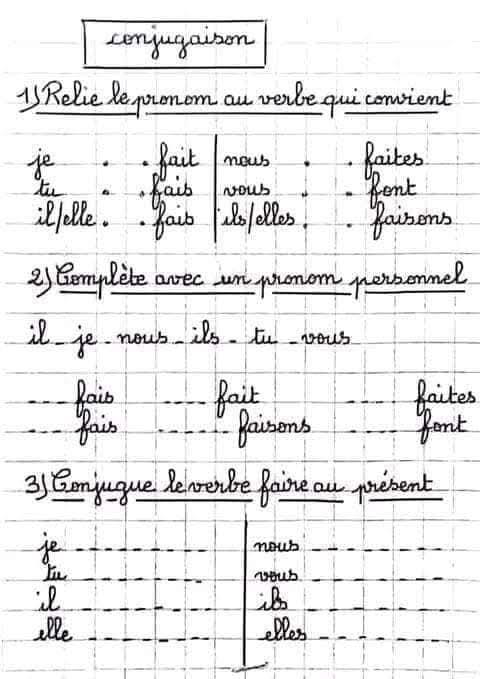 conjugaison
1) Relie le pronom au verbe qui convient
je . . fait nous . . faites
tu . . fais vous . . font
il/elle . . fais ils/elles . . faisons
2) Complète avec un pronom personnel
il - je - nous - ils - tu - vous
---- fais ---- fait ---- faites
---- fais ----- faisons ---- font
3) Conjugue le verbe faire au présent
je -------- nous --------
tu -------- vous --------
il -------- ils --------
elle -------- elles --------